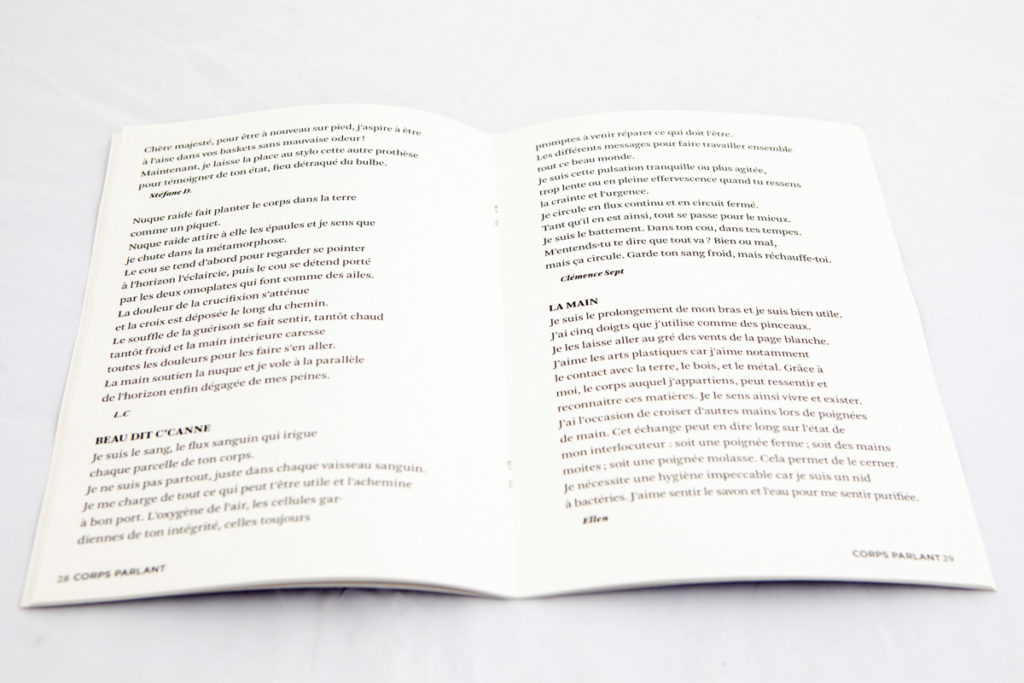 Chère majesté, pour être à nouveau sur pied, j'aspire à être
à l'aise dans vos baskets sans mauvaise odeur !
Maintenant, je laisse la place au stylo cette autre prothèse
pour témoigner de ton état, fieu détraqué du bulbe.
Stéfane D.
Nuque raide fait planter le corps dans la terre
comme un piquet.
Nuque raide attire à elle les épaules et je sens que
je chute dans la métamorphose.
Le cou se tend d'abord pour regarder se pointer
à l'horizon l'éclaircie, puis le cou se détend porté
par les deux omoplates qui font comme des ailes.
La douleur de la crucifixion s'atténue
et la croix est déposée le long du chemin.
Le souffle de la guérison se fait sentir, tantôt chaud
tantôt froid et la main intérieure caresse
toutes les douleurs pour les faire s'en aller.
La main soutien la nuque et je vole à la parallèle
de l'horizon enfin dégagée de mes peines.
L.C
BEAU DIT C'CANNE
Je suis le sang, le flux sanguin qui irigue
chaque parcelle de ton corps.
Je ne suis pas partout, juste dans chaque vaisseau sanguin.
Je me charge de tout ce qui peut t'être utile et l'achemine
à bon port. L'oxygène de l'air, les cellules gar-
diennes de ton intégrité, celles toujours
28 CORPS PARLANT
promptes à venir réparer ce qui doit l'être.
Les différents messages pour faire travailler ensemble
tout ce beau monde.
Je suis cette pulsation tranquille ou plus agitée,
trop lente ou en pleine effervescence quand tu ressens
la crainte et l'urgence.
Je circule en flux continu et en circuit fermé.
Tant qu'il en est ainsi, tout se passe pour le mieux.
Je suis le battement. Dans ton cou, dans tes tempes.
M'entends-tu te dire que tout va ? Bien ou mal,
mais ça circule. Garde ton sang froid, mais réchauffe-toi.
Clémence Sept
LA MAIN
Je suis le prolongement de mon bras et je suis bien utile.
J'ai cinq doigts que j'utilise comme des pinceaux.
Je les laisse aller au gré des vents de la page blanche.
J'aime les arts plastiques car j'aime notamment
le contact avec la terre, le bois, et le métal. Grâce à
moi, le corps auquel j'appartiens, peut ressentir et
reconnaitre ces matières. Je le sens ainsi vivre et exister.
J'ai l'occasion de croiser d'autres mains lors de poignées
de main. Cet échange peut en dire long sur l'état de
mon interlocuteur : soit une poignée ferme ; soit des mains
moites ; soit une poignée molasse. Cela permet de le cerner.
Je nécessite une hygiène impeccable car je suis un nid
à bactéries. J'aime sentir le savon et l'eau pour me sentir purifiée.
Ellen
CORPS PARLANT 29